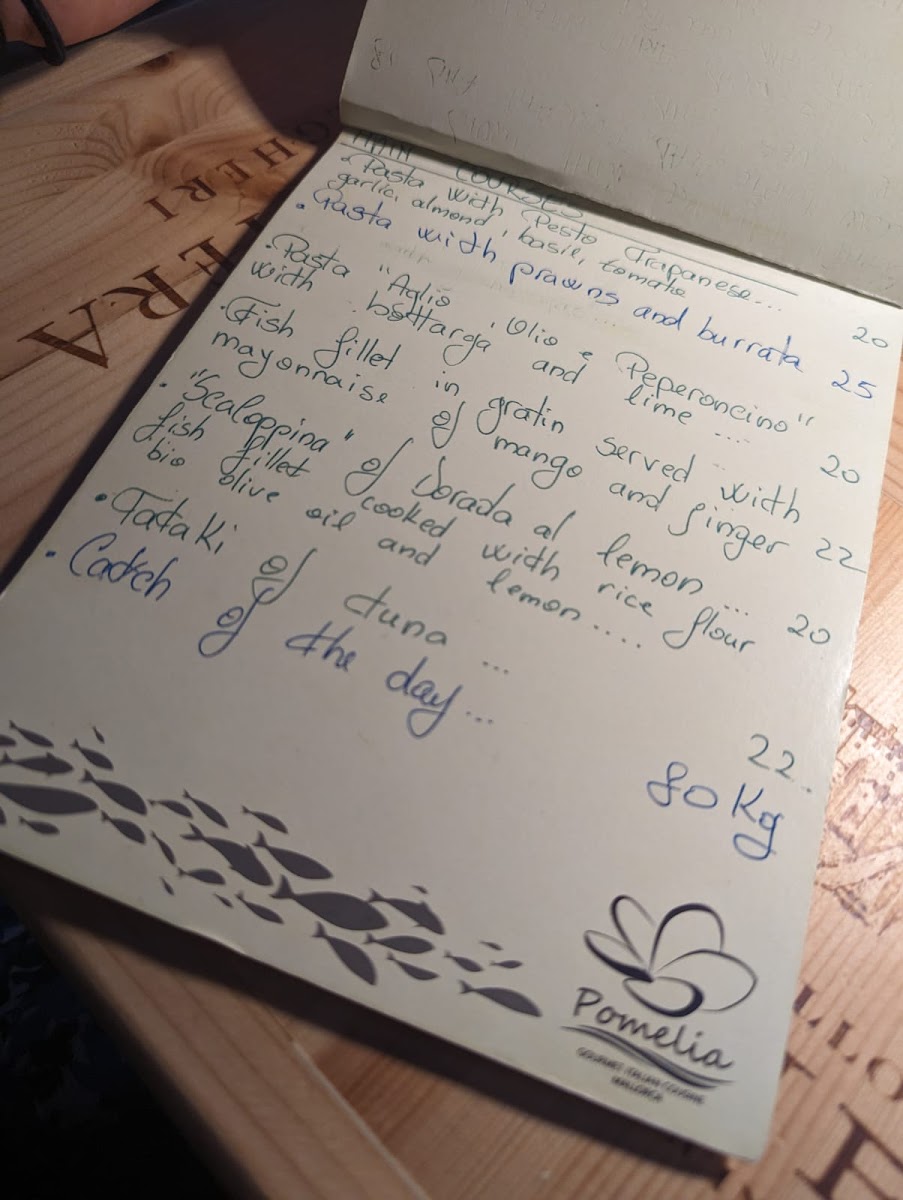 MAIN COURSES
• Pasta with Pesto Trapanese...
garlic, almond, basil, tomato 20
• Pasta with prawns and burrata 25
• Pasta "Aglio, Olio e Peperoncino"
with bottarga and lime .... 20
• Fish fillet in gratin served with
mayonnaise of mango and ginger 22
• "Scaloppina" of Dorada al lemon...
fish fillet cooked with rice flour 20
bio olive oil and lemon .....
• Tataki of tuna ... 22
• Catch of the day... 80 Kg
Pomelia
GOURMET ITALIAN CUISINE
MALLORCA
GHERI
ERA